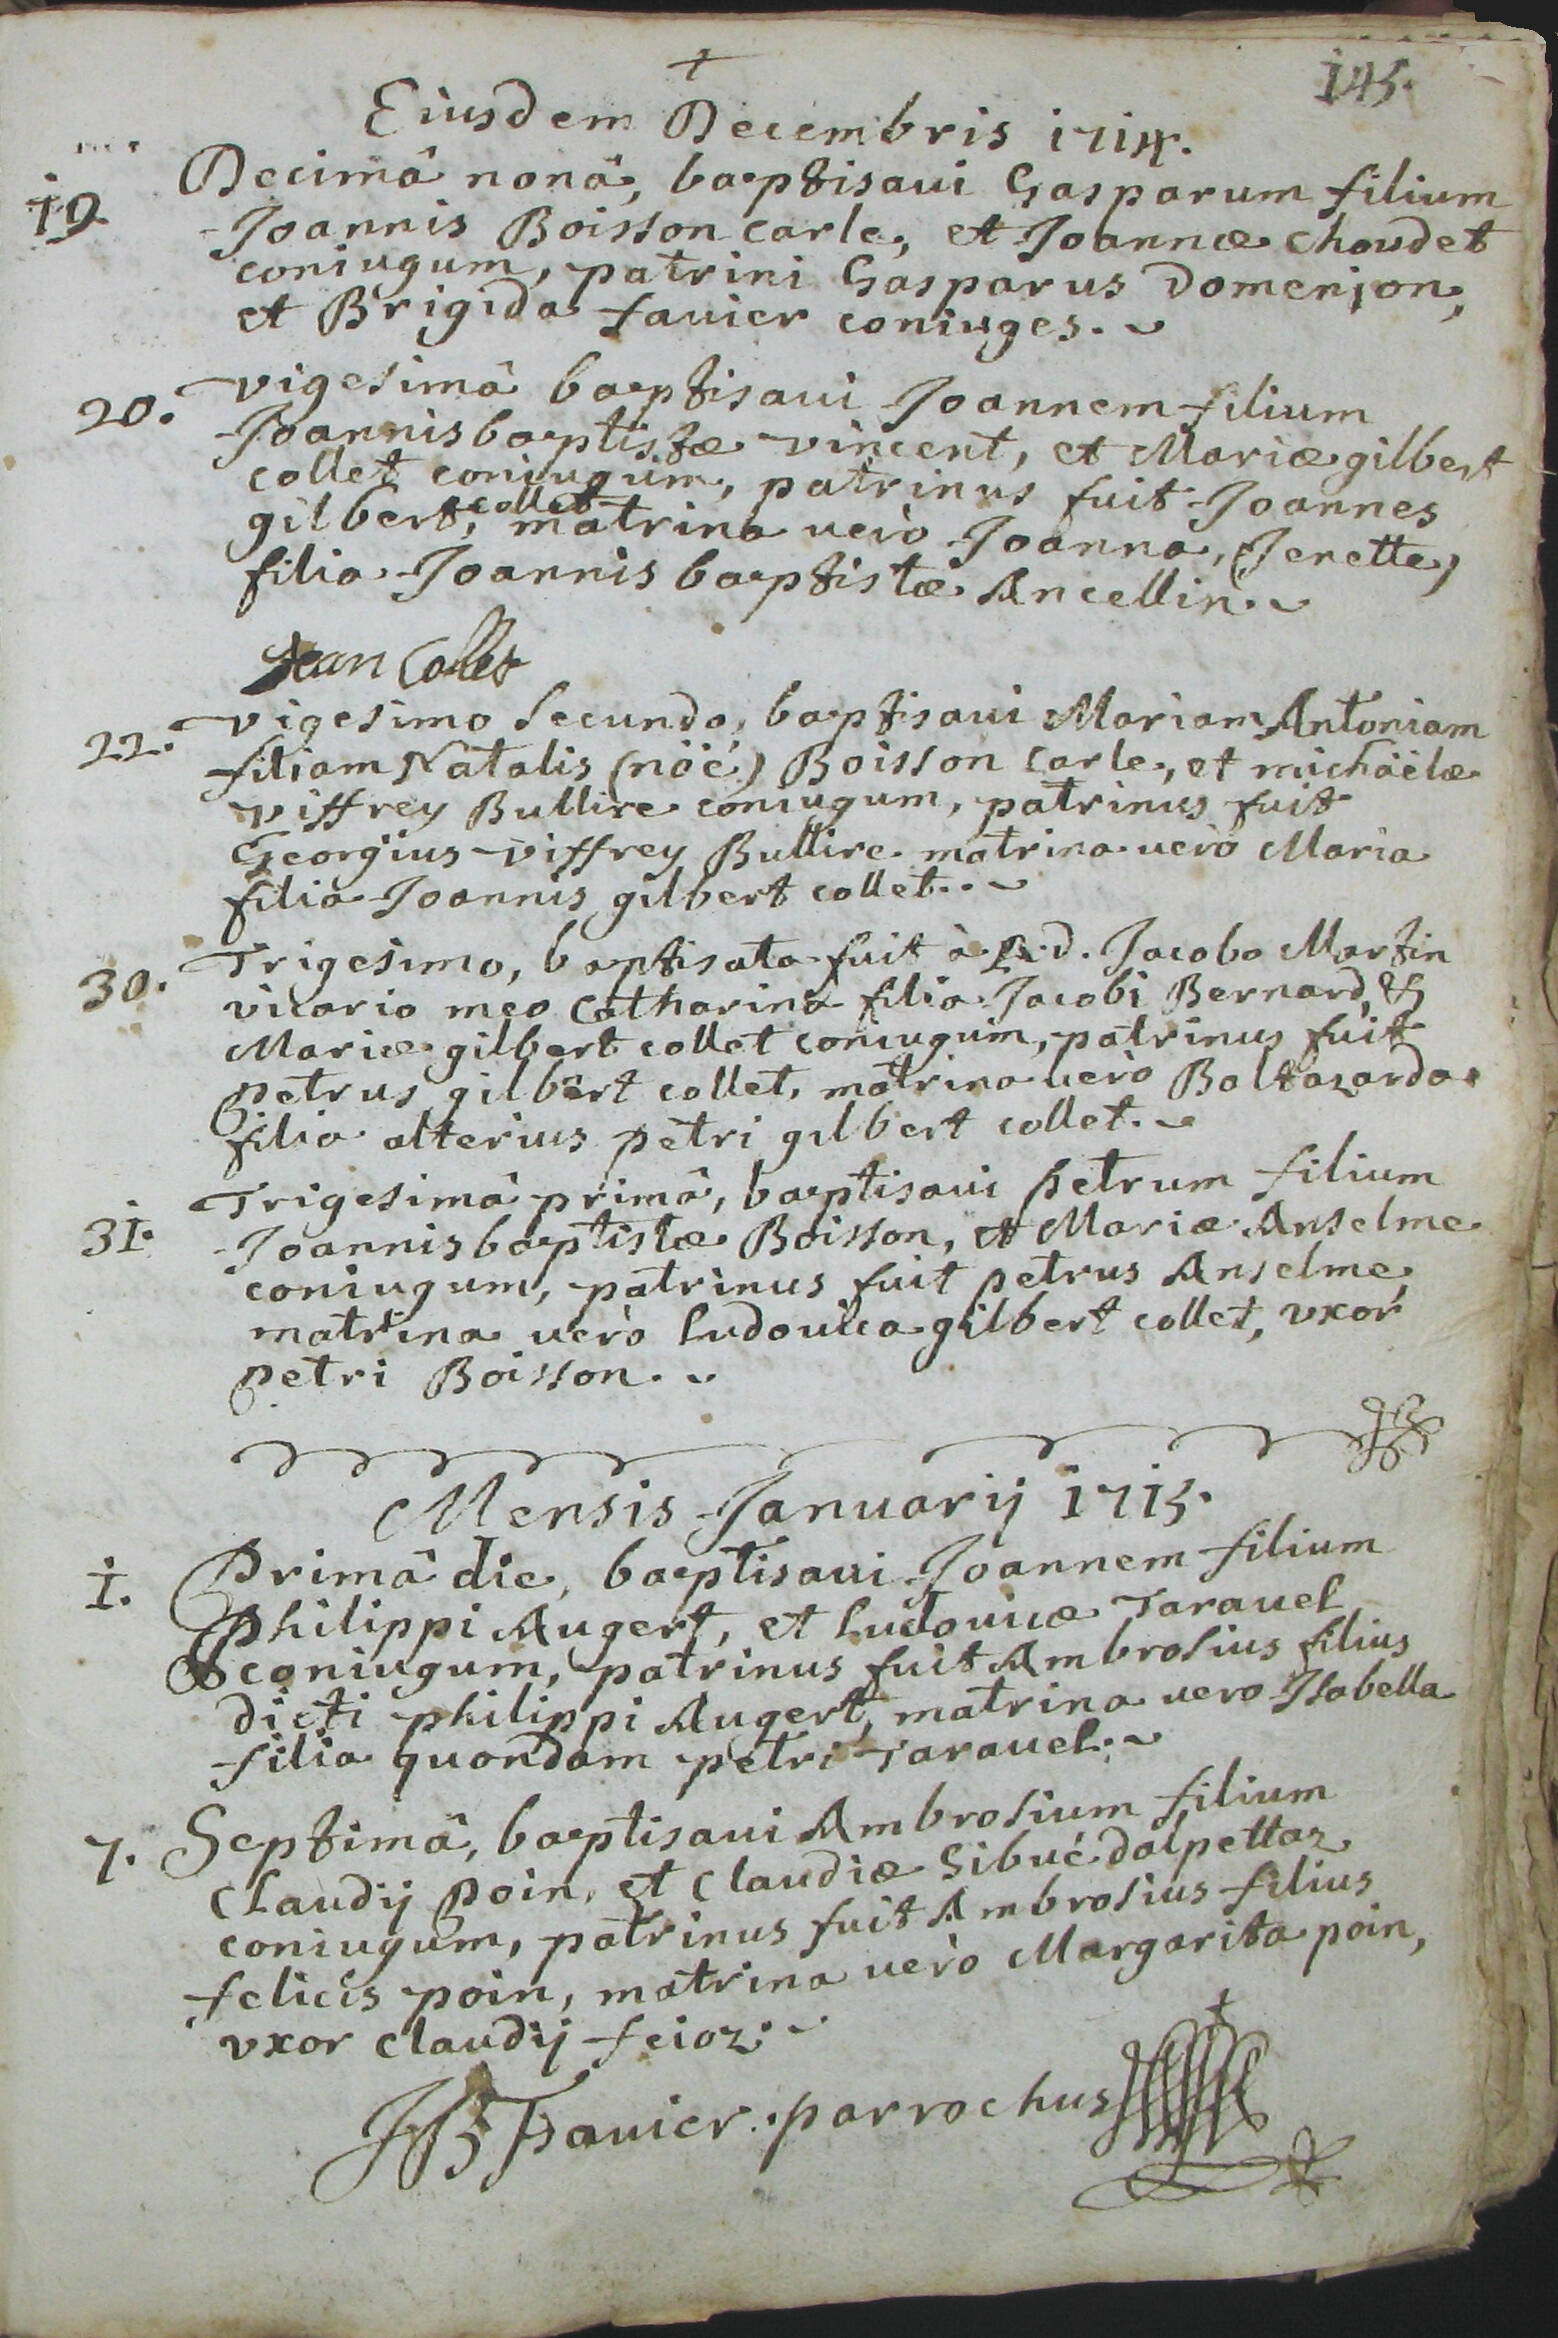 145.
Eiusdem Decembris 1714.
19 Decimâ nonâ, baptisaui Gasparum filium
Joannis Boisson carle, et Joannæ choudet
coniugum, patrini Gasparus Domenjon,
et Brigida favier coniuges.
20. vigesimâ baptisaui Joannem filium
Joannis baptistæ vincent, et Mariæ gilbert
collet coniugum, patrinus fuit Joannes
gilbert, collet matrina verò Joanna, (Jenette)
filia Joannis baptistæ Ancellin.
Jean Collet
22. vigesimo secundo, baptisaui Mariam Antoniam
filiam Natalis (nöé) Boisson carle, et michaëlæ
viffrey Bullire coniugum, patrinus fuit
Georgius viffrey Bullire matrina uerò Maria
filia Joannis gilbert collet.
30. Trigesimo, baptisata fuit à R.d. Jacobo Martin
vicario meo Catharina filia Jacobi Bernard, &
Mariæ gilbert collet coniugum, patrinus fuit
petrus gilbert collet, matrina uerò Baltazarda
filia alterius petri gilbert collet.
31. Trigesimâ primâ, baptisaui petrum filium
Joannis baptistæ Boisson, et Mariæ Anselme
coniugum, patrinus fuit petrus Anselme
matrina uerò ludouica gilbert collet, vxor
petri Boisson.
Mensis Januarij 1715.
1. Primâ die, baptisaui Joannem filium
philippi Augert, et ludouicæ Tarauel
coniugum, patrinus fuit Ambrosius filius
dicti philippi Augert, matrina uero Isabella
filia quondam petri Tarauel.
7. Septimâ, baptisaui Ambrosium filium
Claudij poin, et Claudiæ Sibué dalpettaz
coniugum, patrinus fuit Ambrosius filius
felicis poin, matrina uerò Margarita poin,
vxor claudij feioz.
JB Favier parrochus